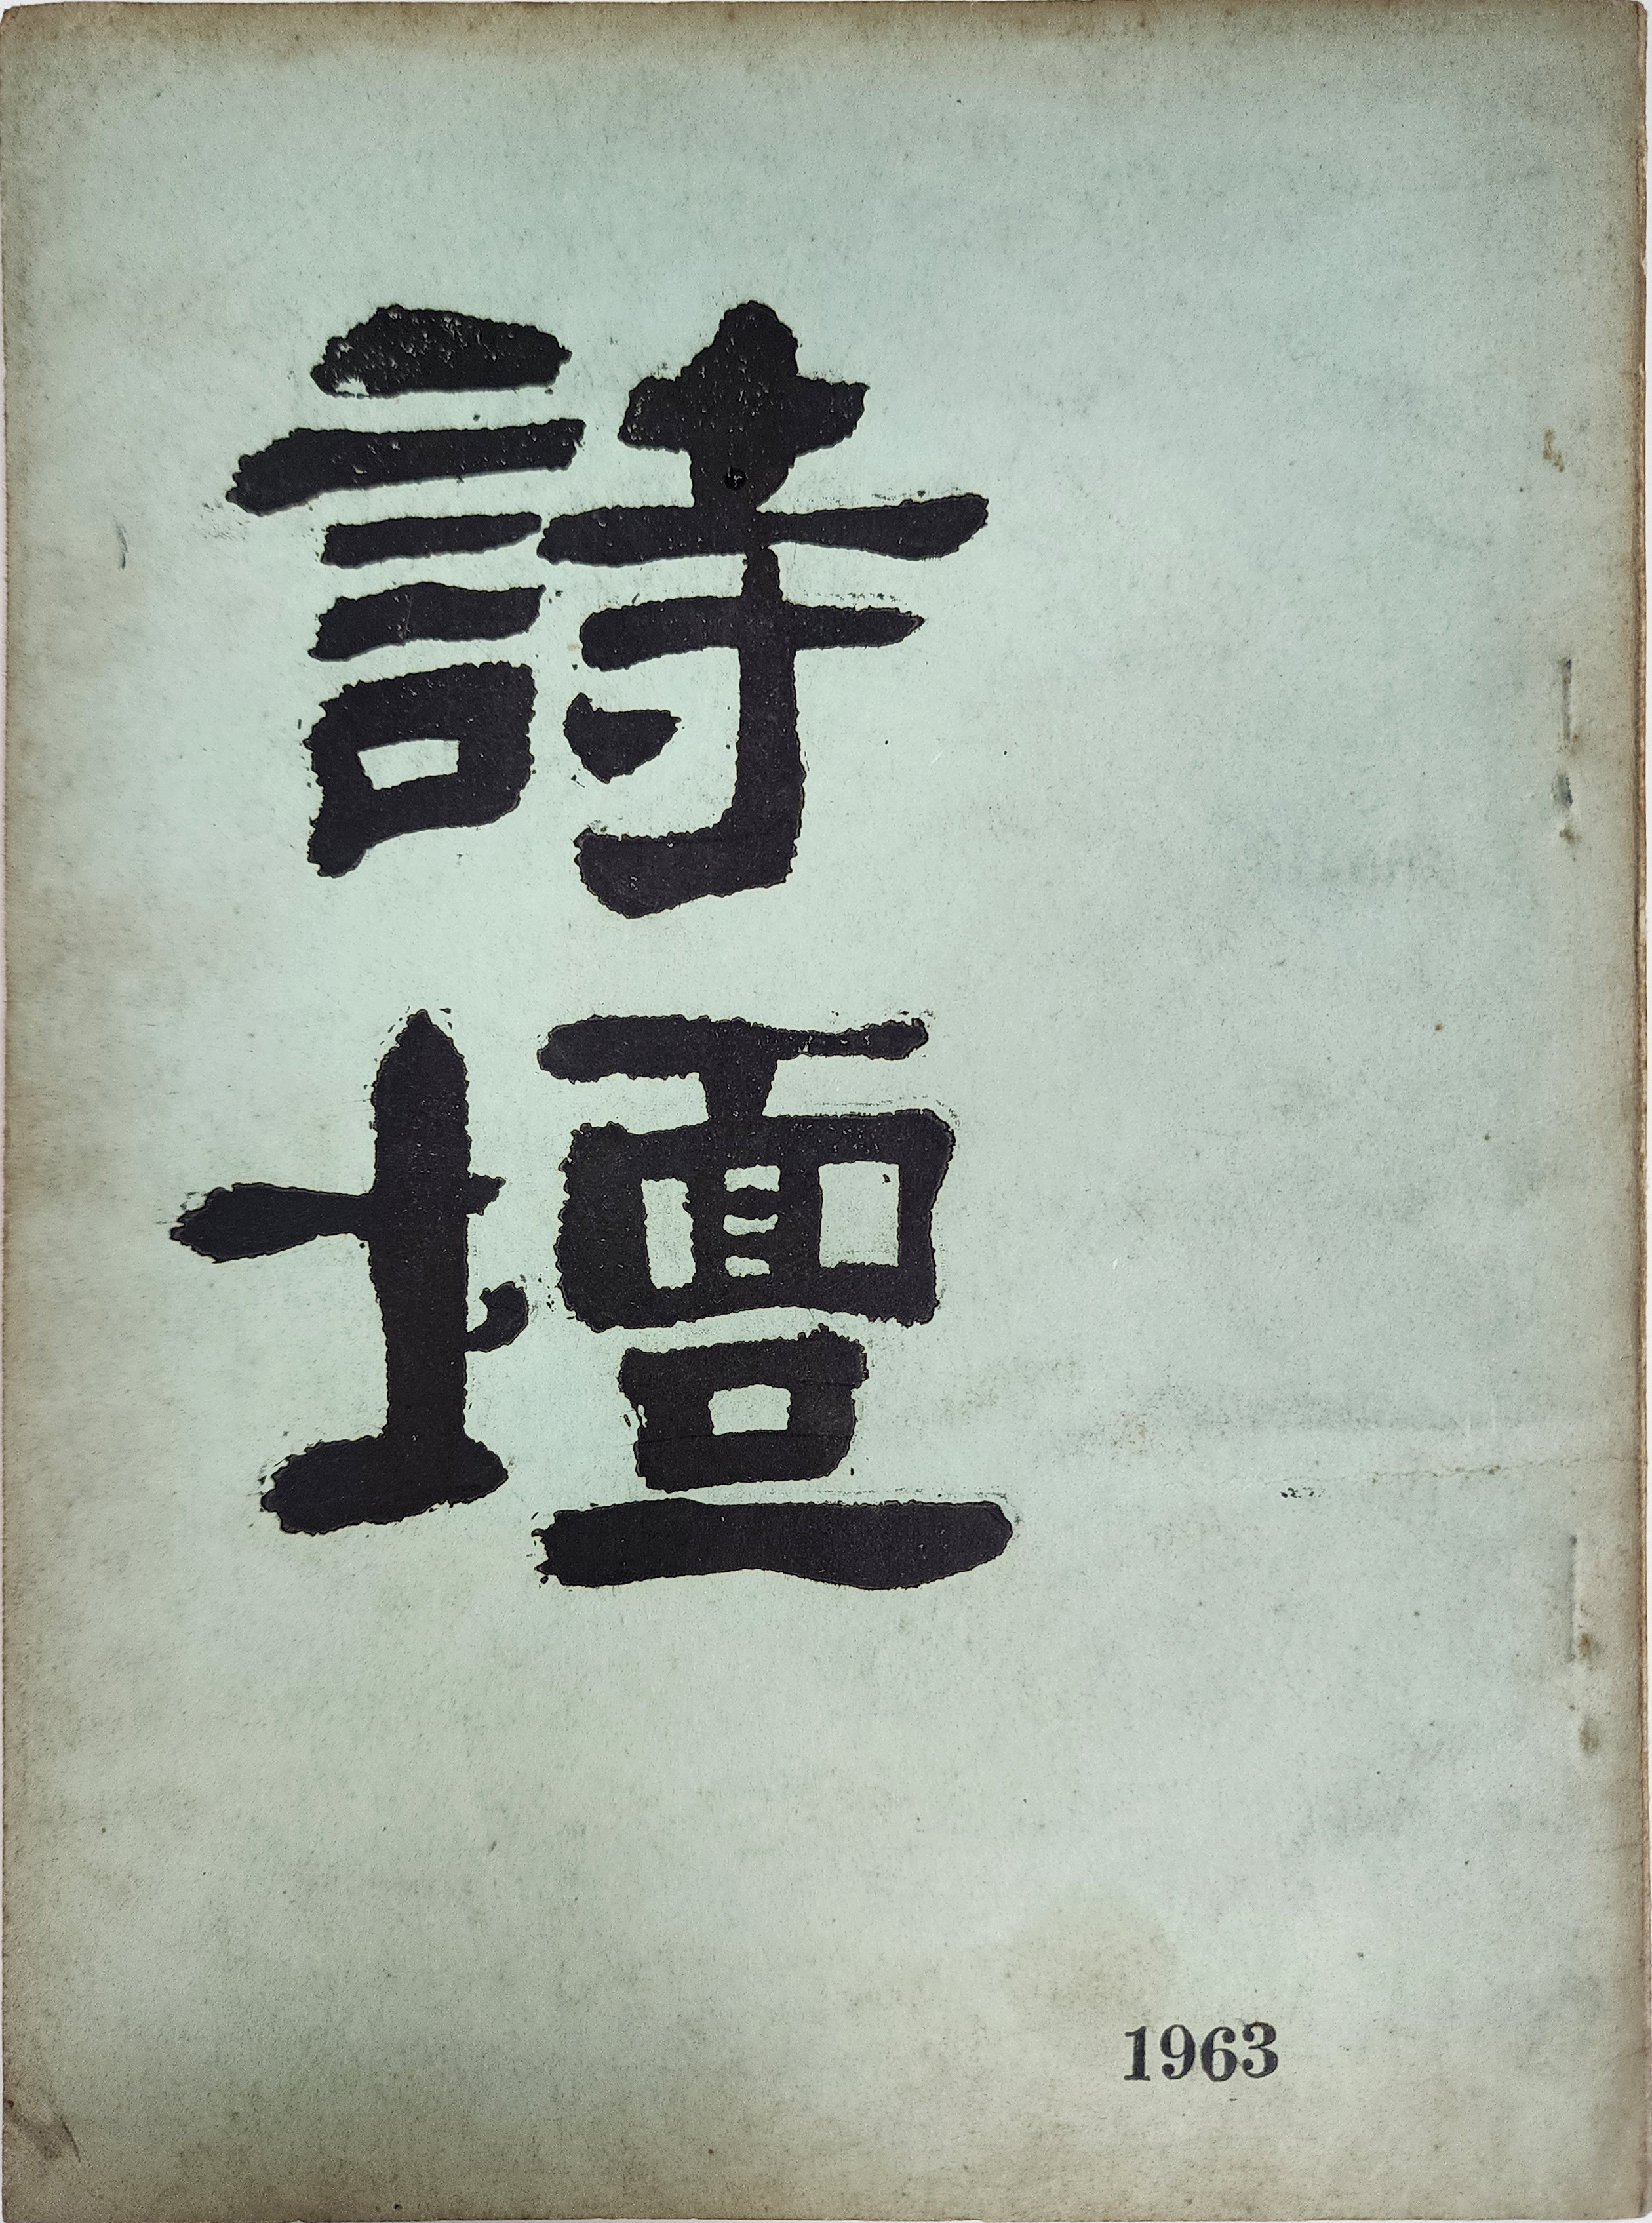 詩壇
1963